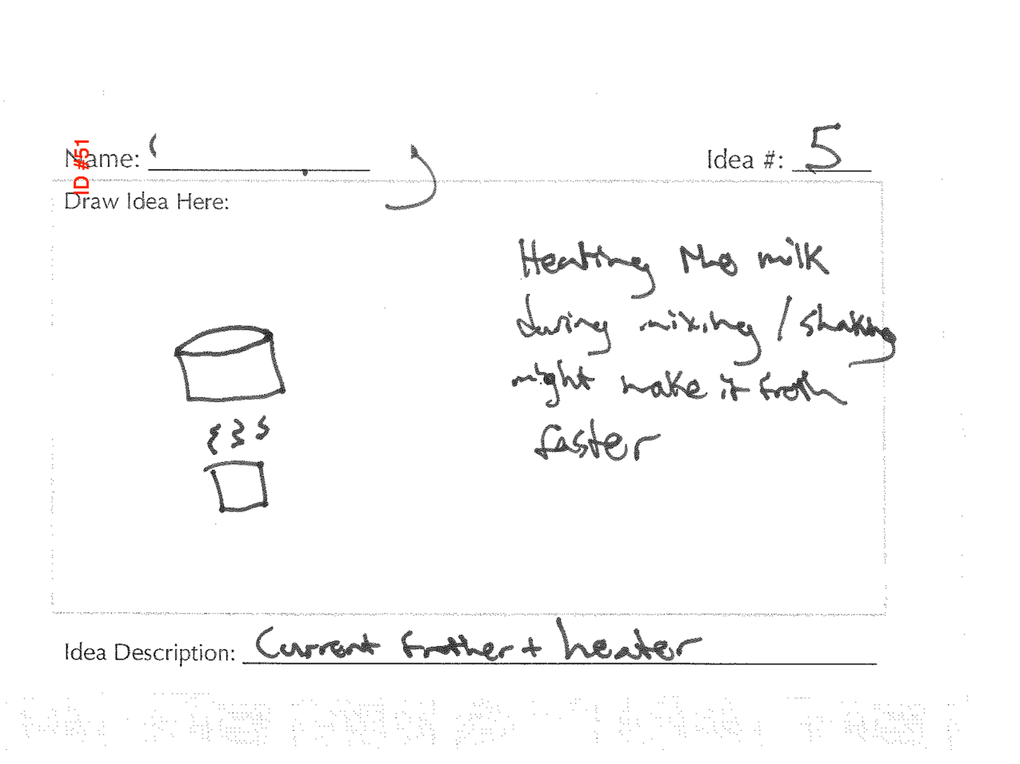 ID #51
Name:
Idea #: 5
Draw Idea Here:
Heating the milk
during mixing / shaking
might make it froth
faster
Idea Description: Current frother + heater